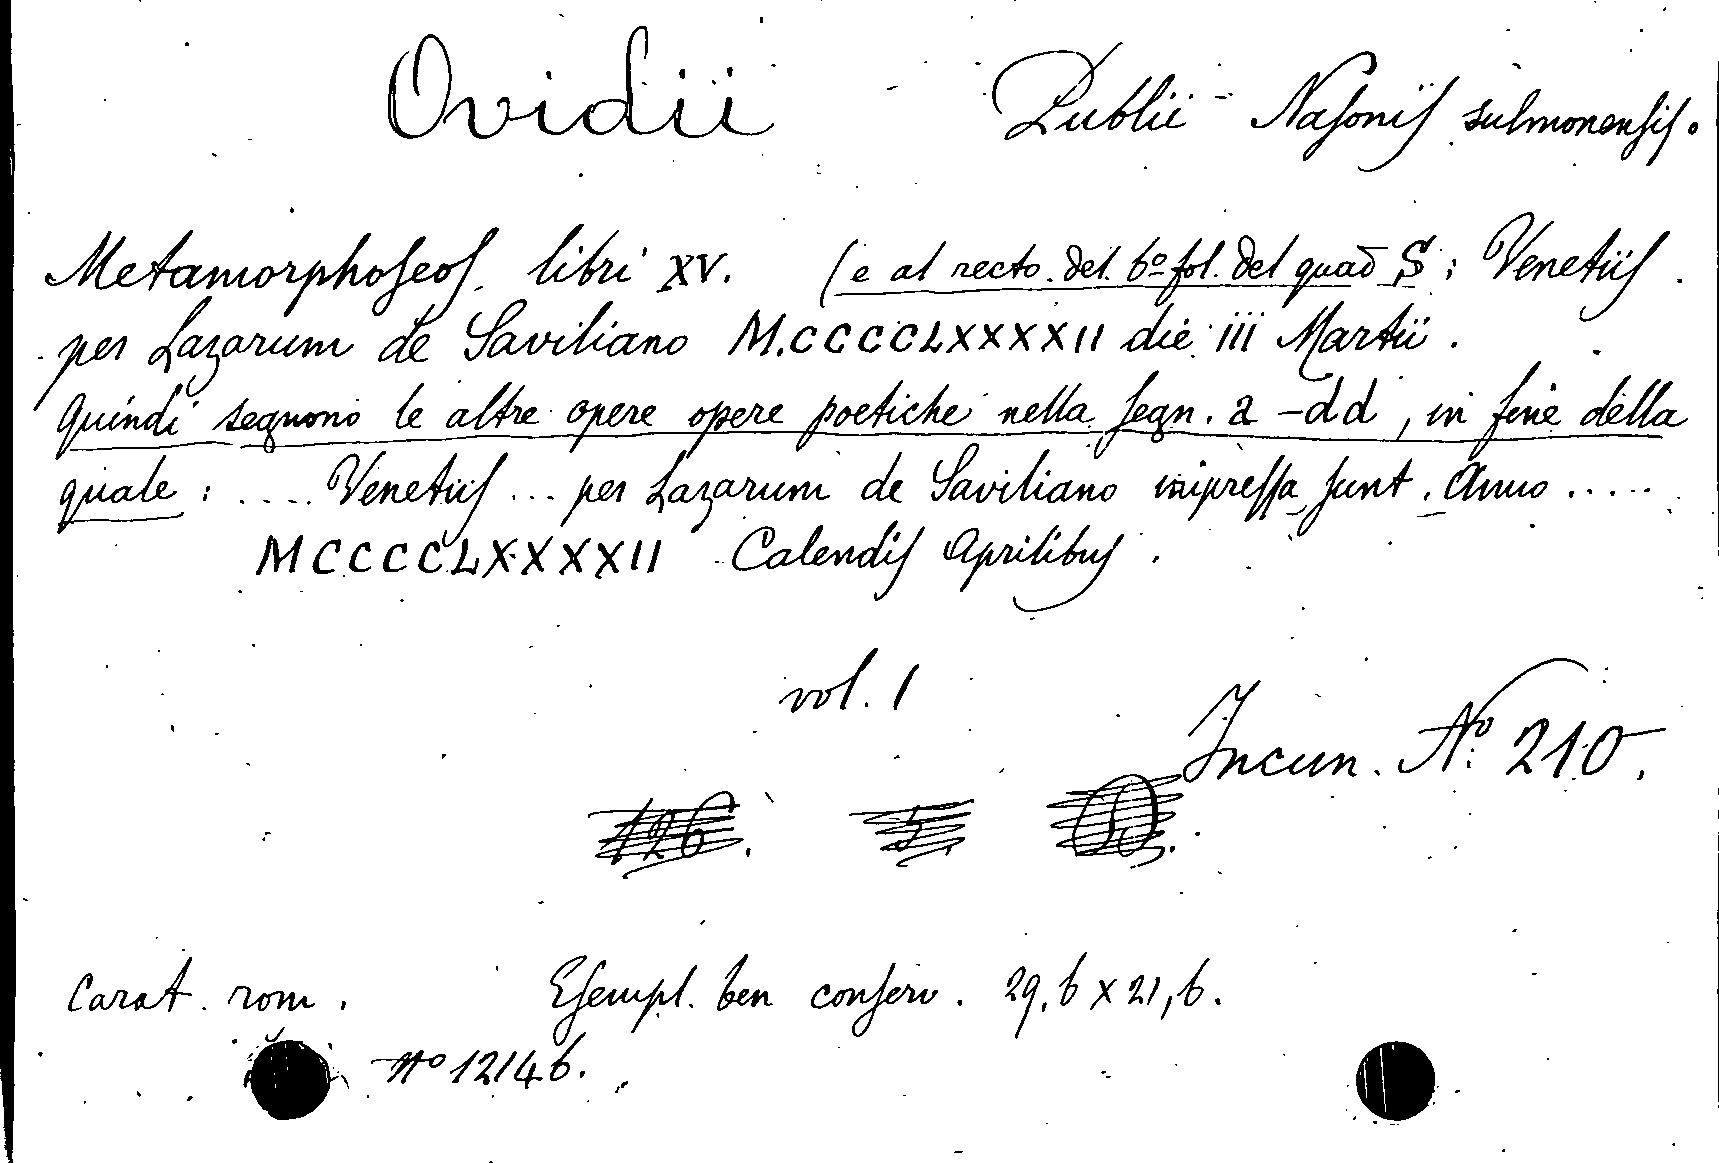 Ovidii Publii Nasonis sulmonensis.
Metamorphoseos libri XV. (e al recto del 6º fol. del quad S: Venetiis
per Lazarum de Saviliano M.CCCCLXXXXII die iii Martii.
Quindi seguono le altre opere opere poetiche nella segn. a-dd, in fine della
quale: .... Venetiis ... per Lazarum de Saviliano impressa sunt. Anno .....
MCCCCLXXXXII Calendis Aprilibus.
vol. 1
Incun. Nº 210.
126. 5.
Carat. rom. Esempl. ben conserv. 29,6 x 21,6.
Nº 12146.